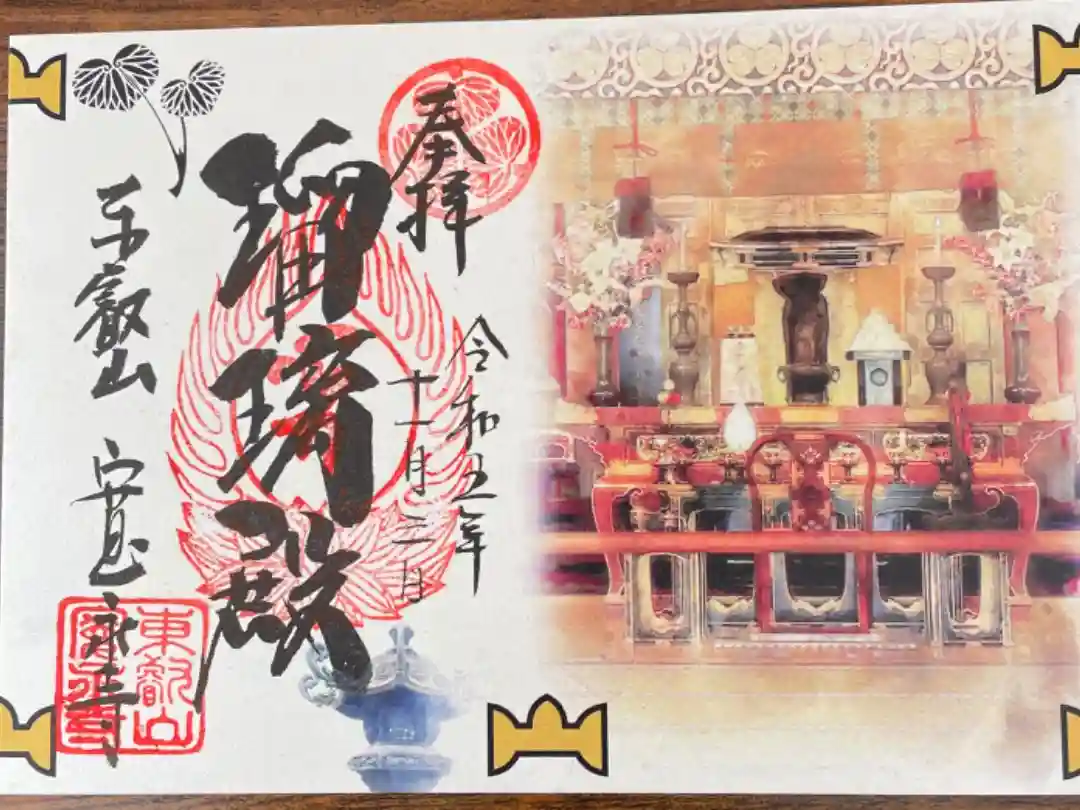 奉拝
令和五年
十一月二日
瑠璃殿
東叡山 寛永寺
東叡山
寛永寺